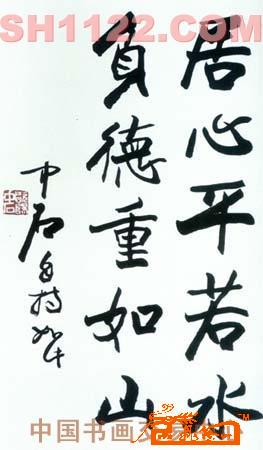 SH1122.COM
居心平若水
負德重如山
中石自持如年
中国书画交易中心